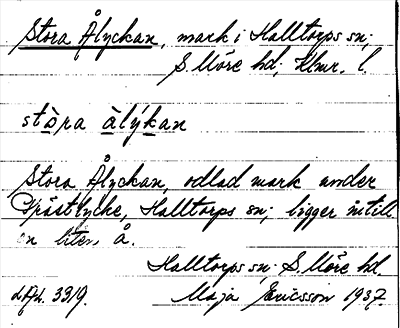 Stora Ålyckan, mark i Halltorps sn;
S. Möre hd; Klmr. l.
stòra àlýkan
Stora Ålyckan, odlad mark under
Prästlycke, Halltorps sn; ligger intill
en liten å.
Halltorps sn; S. Möre hd.
Maja Ericsson 1937.
3319.